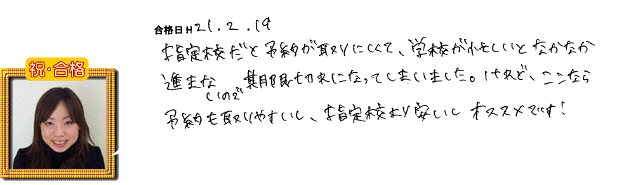 合格日 H21.2.19
祝・合格
指定校だと予約が取りにくくて、学校が忙しいとなかなか
進まないので期限切れになってしまいました。けれど、ここなら
予約も取りやすいし、指定校より安いしオススメです!